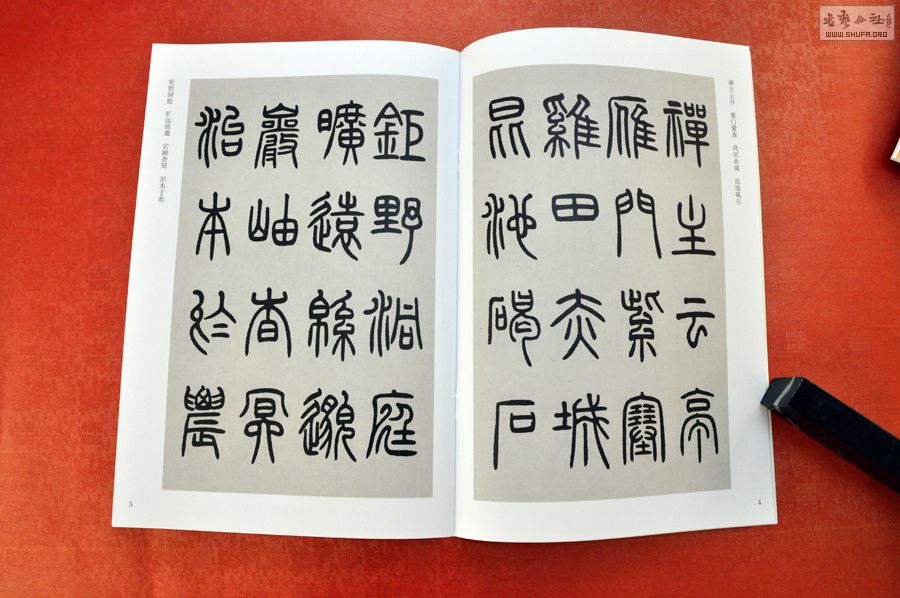 書藝公社
WWW.SHUFA.ORG
禅主云亭 雁门紫塞 鸡田赤城 昆池碣石
禪主云亭
雁門紫塞
雞田赤城
昆池碣石
4
鉅野洞庭
曠遠緜邈
巖岫杳冥
治本於農
钜野洞庭 旷远绵邈 岩岫杳冥 治本于农
5